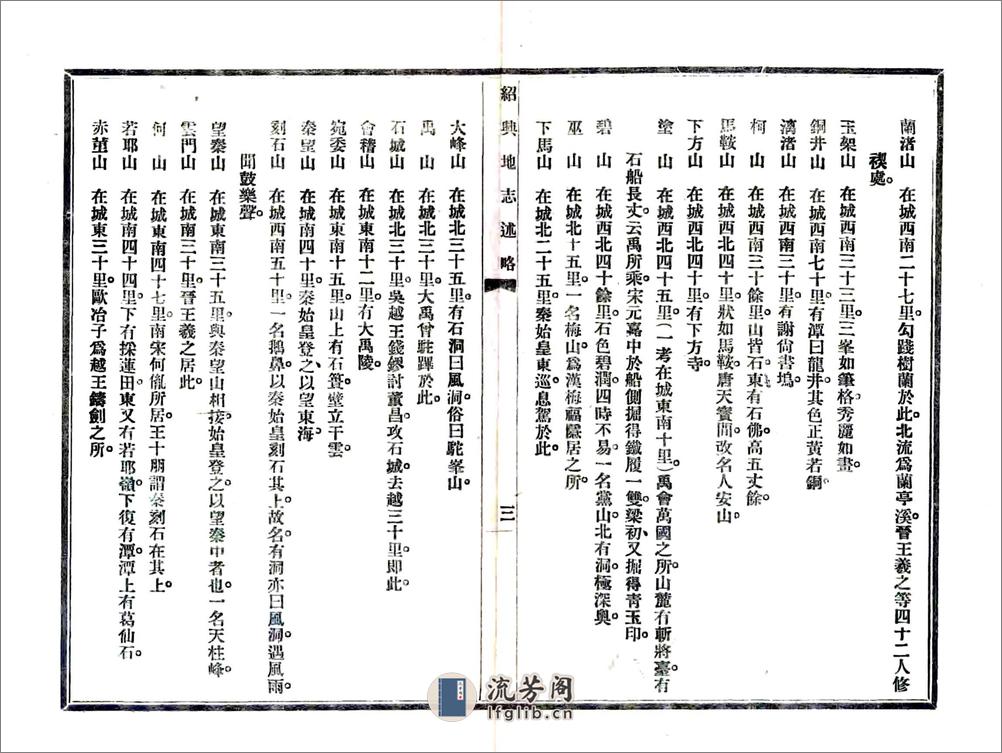 蘭渚山　在城西南二十七里。勾踐樹蘭於此。北流爲蘭亭溪。晉王羲之等四十二人修
禊處。
玉架山　在城西南三十三里。三峯如筆格秀麗如畫
銅井山　在城西南七十里。有潭曰龍井。其色正黃若銅。
漓渚山　在城西南三十里。有謝尙書塢
柯　山　在城西南三十餘里。山皆石。東有石佛。高五丈餘。
馬鞍山　在城西北四十里。狀如馬鞍。唐天寶間改名人安山。
下方山　在城西北四十里。有下方寺。
塗　山　在城西北四十五里。（一考在城東南十里）禹會萬國之所。山麓有斬將臺。有
石船長丈。云禹所乘。宋元嘉中於船側掘得鐵履一雙。梁初、又掘得青玉印。
碧　山　在城西北四十餘里。石色碧潤。四時不易。一名黨山。北有洞極深奧
巫　山　在城北十五里。一名梅山。爲漢梅福隱居之所
下馬山　在城北二十五里。秦始皇東巡息駕於此。
紹興地志述略
三
大峰山　在城北三十五里。有石洞曰風洞。俗曰駝峯山。
禹　山　在城北三十里。大禹曾駐蹕於此
石城山　在城北三十里。吳越王錢鏐討董昌攻石城。去越三十里。即此
會稽山　在城東南十二里。有大禹陵。
宛委山　在城東南十五里。山上有石簣。壁立干雲
秦望山　在城南四十里。秦始皇登之、以望東海。
刻石山　在城西南五十里。一名鵝鼻。以秦始皇刻石其上。故名。有洞亦曰風洞。遇風雨。
聞鼓樂聲。
望秦山　在城東南三十五里。與秦望山相接。始皇登之。以望秦中者也。一名天柱峰。
雲門山　在城南三十里。晉王羲之居此。
何　山　在城東南四十七里。南宋何胤所居。王十朋謂秦刻石在其上。
若耶山　在城南四十四里。下有採蓮田。東又有若耶嶺。下復有潭。潭上有葛仙石。
赤堇山　在城東三十里。歐冶子爲越王鑄劍之所。
流芳阁
lfglib.cn